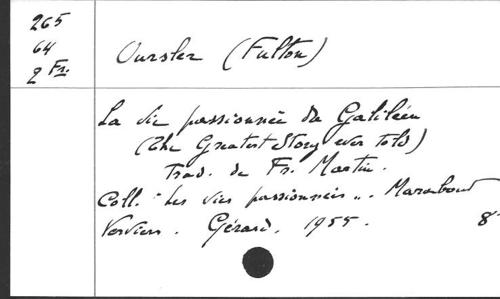 265
64
2 Fr.
Oursler (Fulton)
La vie passionnée du Galiléen
(The Greatest Story ever told)
Trad. de Fr. Martin.
Coll. "Les vies passionnées". Marabout
Verviers. Gérard. 1955. 8°